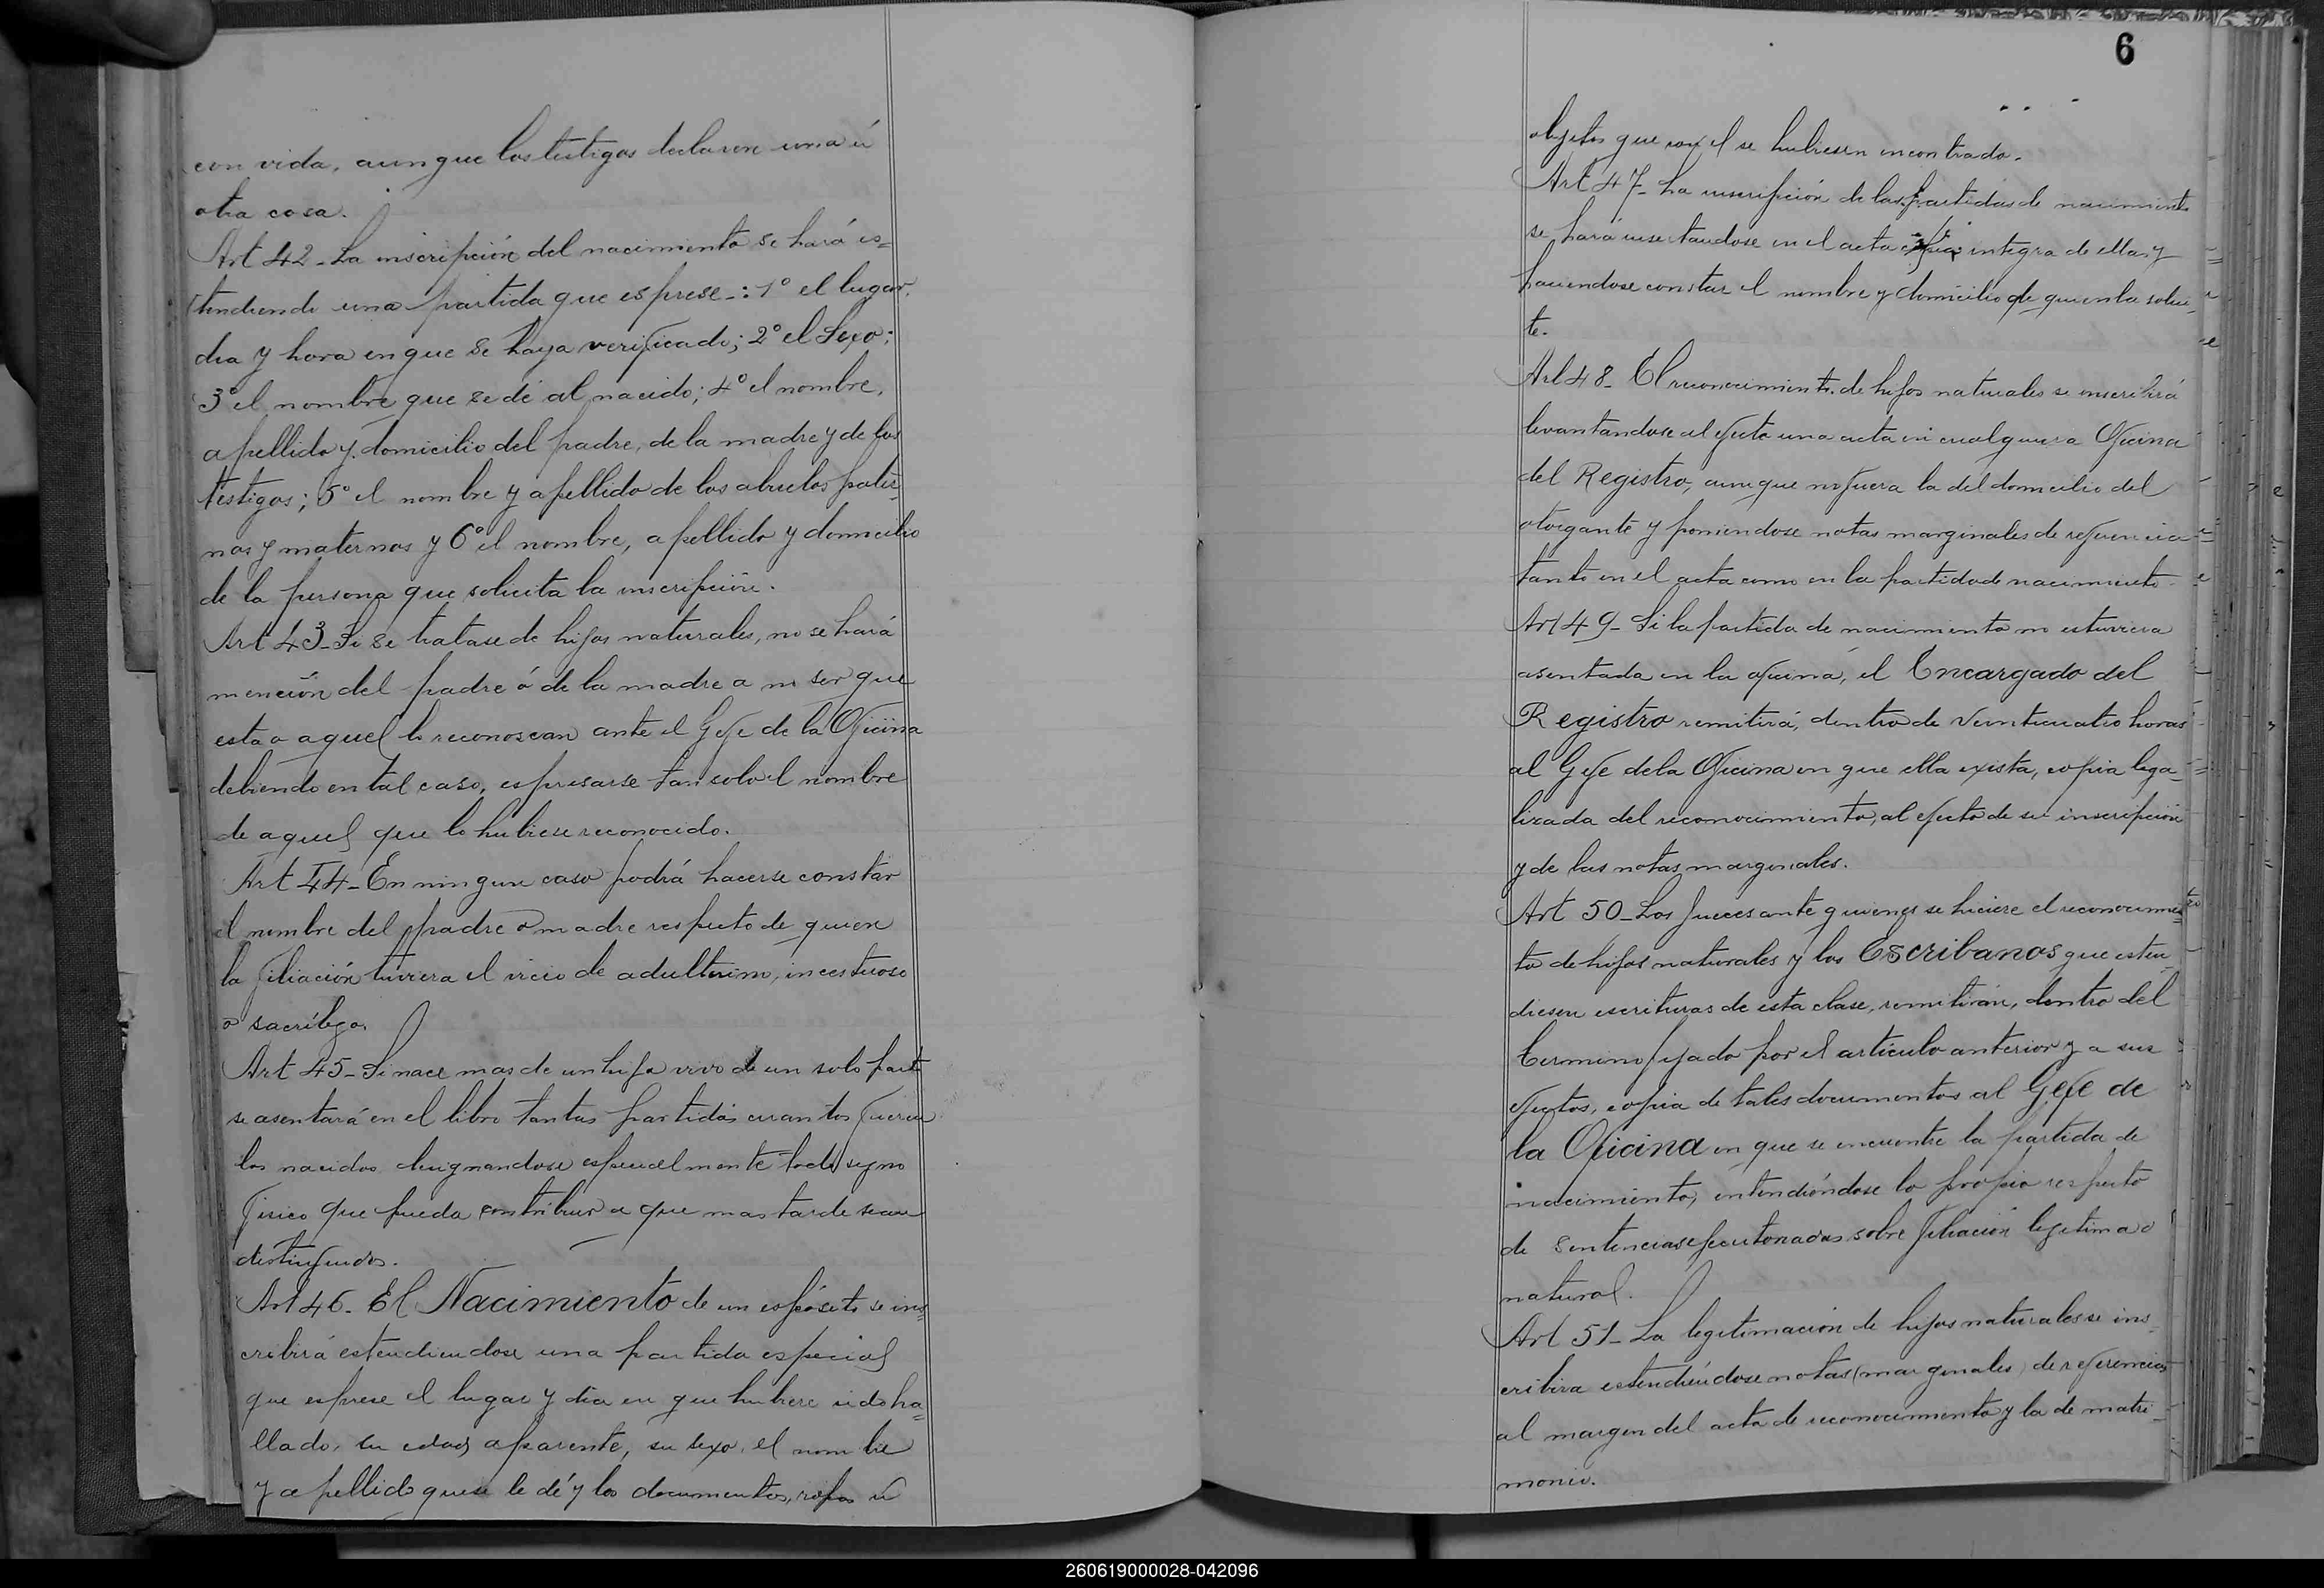 con vida, aunque los testigos declaren una ú
otra cosa.
Art 42 - La inscripción del nacimiento se hará es=
tendiendo una partida que esprese -: 1º el lugar,
dia y hora en que se haya verificado; 2º el Sexo;
3º el nombre que se dé al nacido; 4º el nombre,
apellido y domicilio del padre, de la madre y de los
testigos; 5º el nombre y apellido de los abuelos pater-
nos y maternos y 6º el nombre, apellido y domicilio
de la persona que solicita la inscripción.
Art 43 - Si se tratase de hijos naturales, no se hará
mención del padre ó de la madre a no ser que
esta o aquel lo reconoscan ante el Gefe de la Oficina
debiendo en tal caso, espresarse tan solo el nombre
de aquel que lo hubiese reconocido.
Art 44 - En ningun caso podrá hacerse constar
el nombre del padre o madre respecto de quien
la filiación tuviera el vicio de adulterino, incestuoso
o sacrílego.
Art 45 - Si nace mas de un hijo vivo de un solo parto
se asentará en el libro tantas partidas cuantos fueren
los nacidos designandose especialmente todo signo
fisico que pueda contribuir a que mas tarde sean
distinguidos.
Art 46 - El Nacimiento de un espósito se ins=
cribirá estendiendose una partida especial
que esprese el lugar y dia en que hubiere sido ha=
llado, su edad aparente, su sexo, el nombre
y apellido que se le dé y los documentos, ropas ú
6
objetos que con el se hubiesen encontrado.
Art 47 - La inscripción de las partidas de nacimiento
se hará insertandose en el acta copia integra de ellas y
haciendose constar el nombre y domicilio de quien la solici-
te.
Art 48 - El reconocimiento de hijos naturales se inscribirá
levantandose al efecto una acta en cualquiera Oficina
del Registro, aunque no fuera la del domicilio del
otorgante y poniendose notas marginales de referencia
tanto en el acta como en la partida de nacimiento.
Art 49 - Si la partida de nacimiento no estuviera
asentada en la oficina, el Encargado del
Registro remitirá, dentro de veinticuatro horas
al Gefe de la Oficina en que ella exista, copia lega-
lizada del reconocimiento, al efecto de su inscripción
y de las notas marginales.
Art 50 - Los Jueces ante quienes se hiciere el reconocimien
to de hijos naturales y los Escribanos que esten-
diesen escrituras de esta clase, remitirán, dentro del
termino fijado por el artículo anterior y a sus
efectos, copia de tales documentos al Gefe de
la Oficina en que se encuentre la partida de
nacimiento, entendiéndose lo propio respecto
de sentencias ejecutoriadas sobre filiación legitima o
natural.
Art 51 - La legitimación de hijos naturales se ins-
cribira estendiéndose notas (marginales) de referencias
al margen del acta de reconocimiento y la de matri-
monio.
260619000028-042096